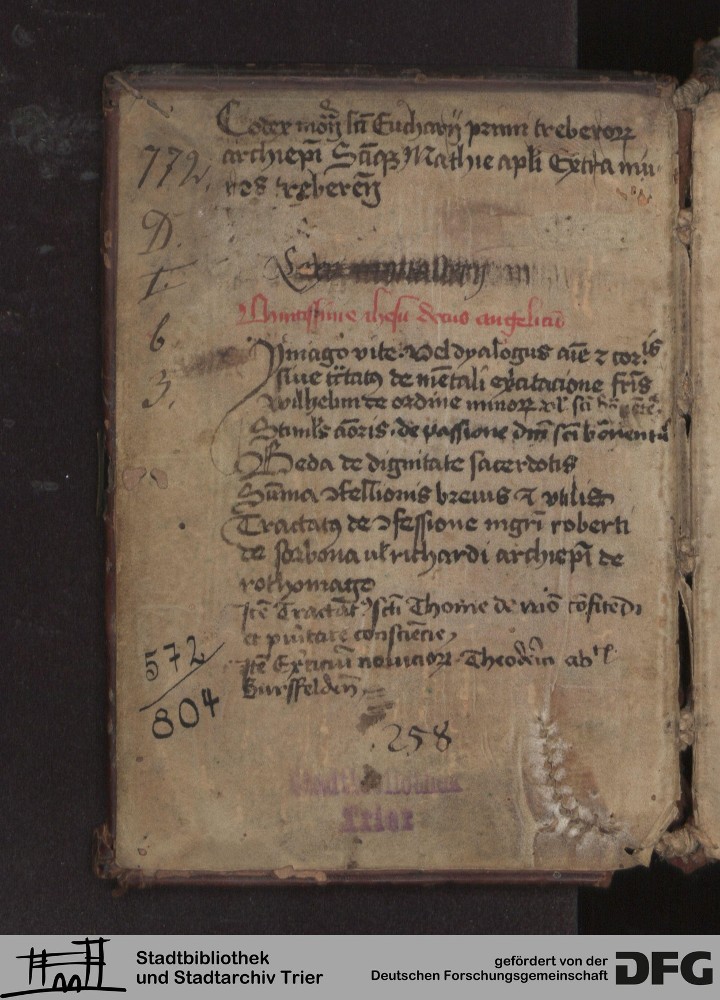 Codex mon scti Eucharij primi treberorꝝ
archiepi Sctiqꝫ Mathie apli Extra mu
ros treberen
772.
D.
I.
6
3.
Amantissime ihesu decus angelicū
Ymago vite. Vel dyalogus aīe ⁊ corꝑis
siue tctatꝰ de mētali exercitacione fris
wilhelmi de ordine minorꝝ
Stimulꝰ amoris. de passione dni scti bonauentu
Beda de dignitate sacerdotis
Sūma ꝯfessionis breuis ⁊ vtilis
Tractatꝰ de ꝯfessione mgri roberti
de sorbona ul richardi archiepi de
rothomago
Itē Tractat scti Thome de mō cōfitedi
et puritate consciēcie
Itē Exercitiū nouiciorꝝ Theoderici
Bursfelden
572
804
.258
Stadtbibliothek
Trier
Stadtbibliothek
und Stadtarchiv Trier
gefördert von der
Deutschen Forschungsgemeinschaft
DFG